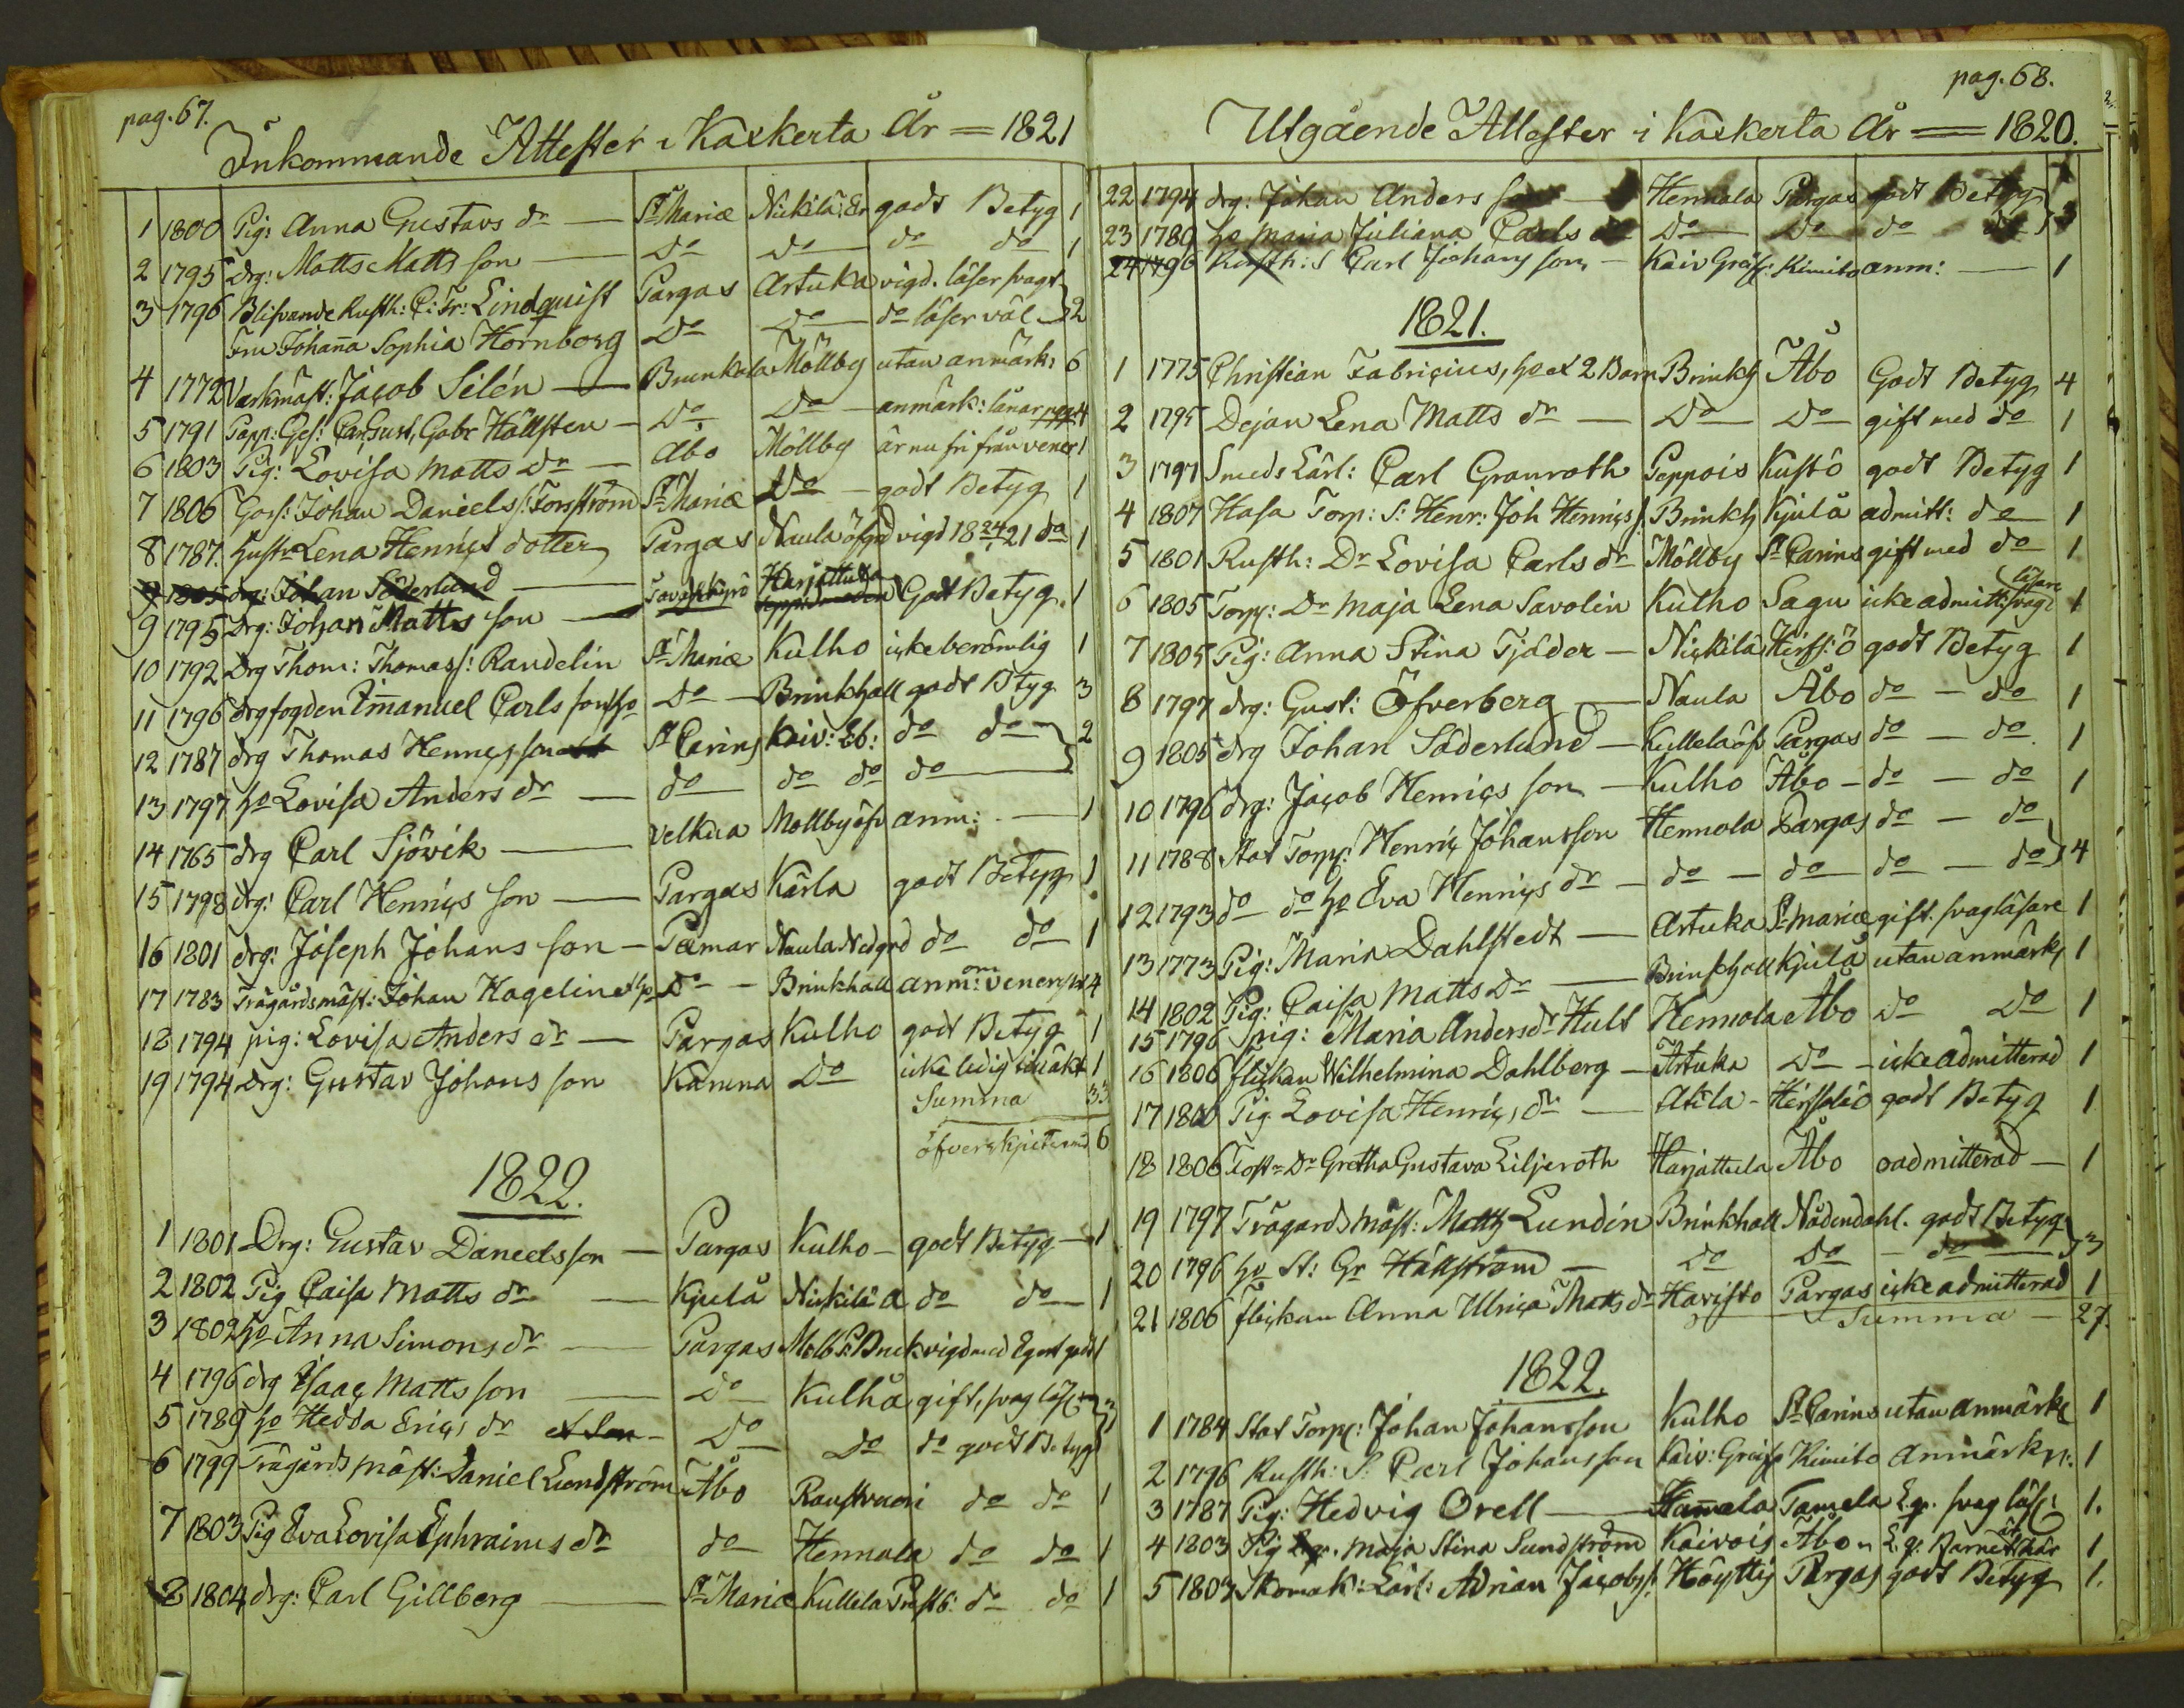 pag. 67.
Inkommande Attester i Kackerta År = 1821
1 1800 Pig: Anna Gustavs dr — St Mariæ Nickilä, Er godt Betyg 1
2 1795 drg: Matts Matts son — Do Do do do 1
3 1796 Blifvande Rusth: C: Fr: Lindquist Pargas Artuka vigd. läser svagt
Fru Johanna Sophia Hornborg Do Do do läser väl 2
4 1772 Värkmäst: Jacob Silén — Brunkala Möllby utan anmärk: 6
5 1791 Papp: Ges: Car. Gust, Gabr Hällsten — Do Do — anmärk: lånar 4
6 1803 Pig: Lovisa Matts Dr — Abo Möllby är nu fri från vener 1
7 1806 Goss: Johan Daniels s: Forsström St Mariæ Do — godt Betyg 1
8 1787. Hustr Lena Henrics dotter Pargas Naula öfgd vigd 18 24/4 21 do 1
9 1805 drg: Johan Söderlund —
9 1795 Drg: Johan Matts son — Harjattula Godt Betyg. 1
10 1792 Drg Thom: Thomas s: Randelin St Mariæ Kulho icke berömlig 1
11 1796 drgfogden Emanuel Carls son, ho Do — Brinkhall godt Btyg 3
12 1787 drg Thomas Henrics son St Carins Koiv: Eb: do do 2
13 1797 ho Lovisa Anders dr — do do do do
14 1765 drg Carl Sjövik — Velkua Mollby öfv anm: — 1
15 1798 drg: Carl Henrics son — Pargas Kärla godt Betyg 1
16 1801 drg: Joseph Johans son — Pæmar Naula Nedgrd do do 1
17 1783 Trägårdsmäst: Johan Hagelin et ho Do — Brinkhall anm: om vener 4
18 1794 pig: Lovisa Anders dr — Pargas Kulho godt Betyg 1
19 1794 Drg: Gustav Johans son Karuna Do icke ledig til äkt 1
Summa 33
öfverskjutand 6
1822.
1 1801 Drg: Gustav Daniels son — Pargas Kulho — godt Betyg — 1
2 1802 Pig Caisa Matts dr — Kjulå Nickilä A do do 1
3 1802 ho Anna Simons dr — Pargas vigd med godt 1
4 1796 drg Isaac Matts son — Do Kulhå gift, svag läs:
5 1789 ho Hedda Erics dr et Son — Do Do do godt Betyg 3
6 1799 Trägårds mäst: Daniel Lundström Åbo Raustvuori do do 1
7 1803 Pig Eva Lovisa Ephraims dr do Hennala do do 1
8 1804 drg: Carl Gillberg — St Mariæ Kullela Prestb: do do 1
pag. 68.
Utgående Attester i Kackerta År = 1820.
22 1794 drg: Johan Anders son — Hennala Pargas godt Betyg
23 1789 ho Maria Juliana Carls dr Do Do do do 3
24 1796 Rusth: S Carl Johans son — Koiv Greis: Kimito anm: — 1
1821.
1 1775 Christian Fabricius, ho et 2 Barn Brinkh Åbo Godt Betyg 4
2 1795 Dejan Lena Matts dr — Do Do gift med do 1
3 1797 Smeds Lärl: Carl Granroth Peppois Kustö godt Betyg 1
4 1807 Hasa Torp: S: Henr: Joh Henrics s. Brinkh Kjulå admitt: do 1
5 1801 Rusth: Dr Lovisa Carls dr Möllby St Carins gift med do 1
6 1805 Torp: Dr Maja Lena Savolin Kulho Sagu icke admitt: svag läsare 1
7 1805 Pig: Anna Stina Tjäder — Nickilä Hirfs: ö godt Betyg 1
8 1797 drg: Gust: Öfverberg — Naula Åbo do — do 1
9 1805 drg Johan Söderlund — Kullela öf Pargas do — do 1
10 1796 drg: Jacob Henrics son — Kulho Åbo — do — do 1
11 1788 Stat Torp: Henric Johansson Hennola Pargas do — do
12 1793 do do ho Eva Henrics dr — do — do do — do 4
13 1773 Pig: Maria Dahlstedt — Artuka St Mariæ gift. svag läsare 1
14 1802 Pig: Caisa Matts Dr — Brinkhall Kjulå utan anmärk 1
15 1796 pig: Maria Anders dr Hult Hennola Åbo Do Do 1
16 1806 flickan Wilhelmina Dahlberg — Artuka Do — icke admitterad 1
17 1800 Pig Lovisa Henrics dr — Atila — Hirfsalö godt Betyg 1
18 1806 Gretha Gustava Liljeroth Harjattula Åbo oadmitterad — 1
19 1797 Trägårdsmäst: Matts Lundin Brinkhall Nådendahl. godt Betyg
20 1796 ho St: Gr Hällström — Do Do — do — 3
21 1806 flickan Anna Ulrica Matts dr Haristo Pargas icke admitterad 1
Summa — 27.
1822.
1 1784 Stat Torp: Johan Johansson Kulho St Carins utan anmärk 1
2 1796 Rusth: S: Carl Johansson Koiv: Greis Kimito Anmärkn: 1
3 1787 Pig: Hedvig Orell — Hanela Tamela svag läs: 1.
4 1803 Pig Maja Stina Sundström Koivois Åbo Barnet är 1
5 1803 Skomak: Lärl: Adrian Jacobs s. Höyttis Pargas godt Betyg 1.